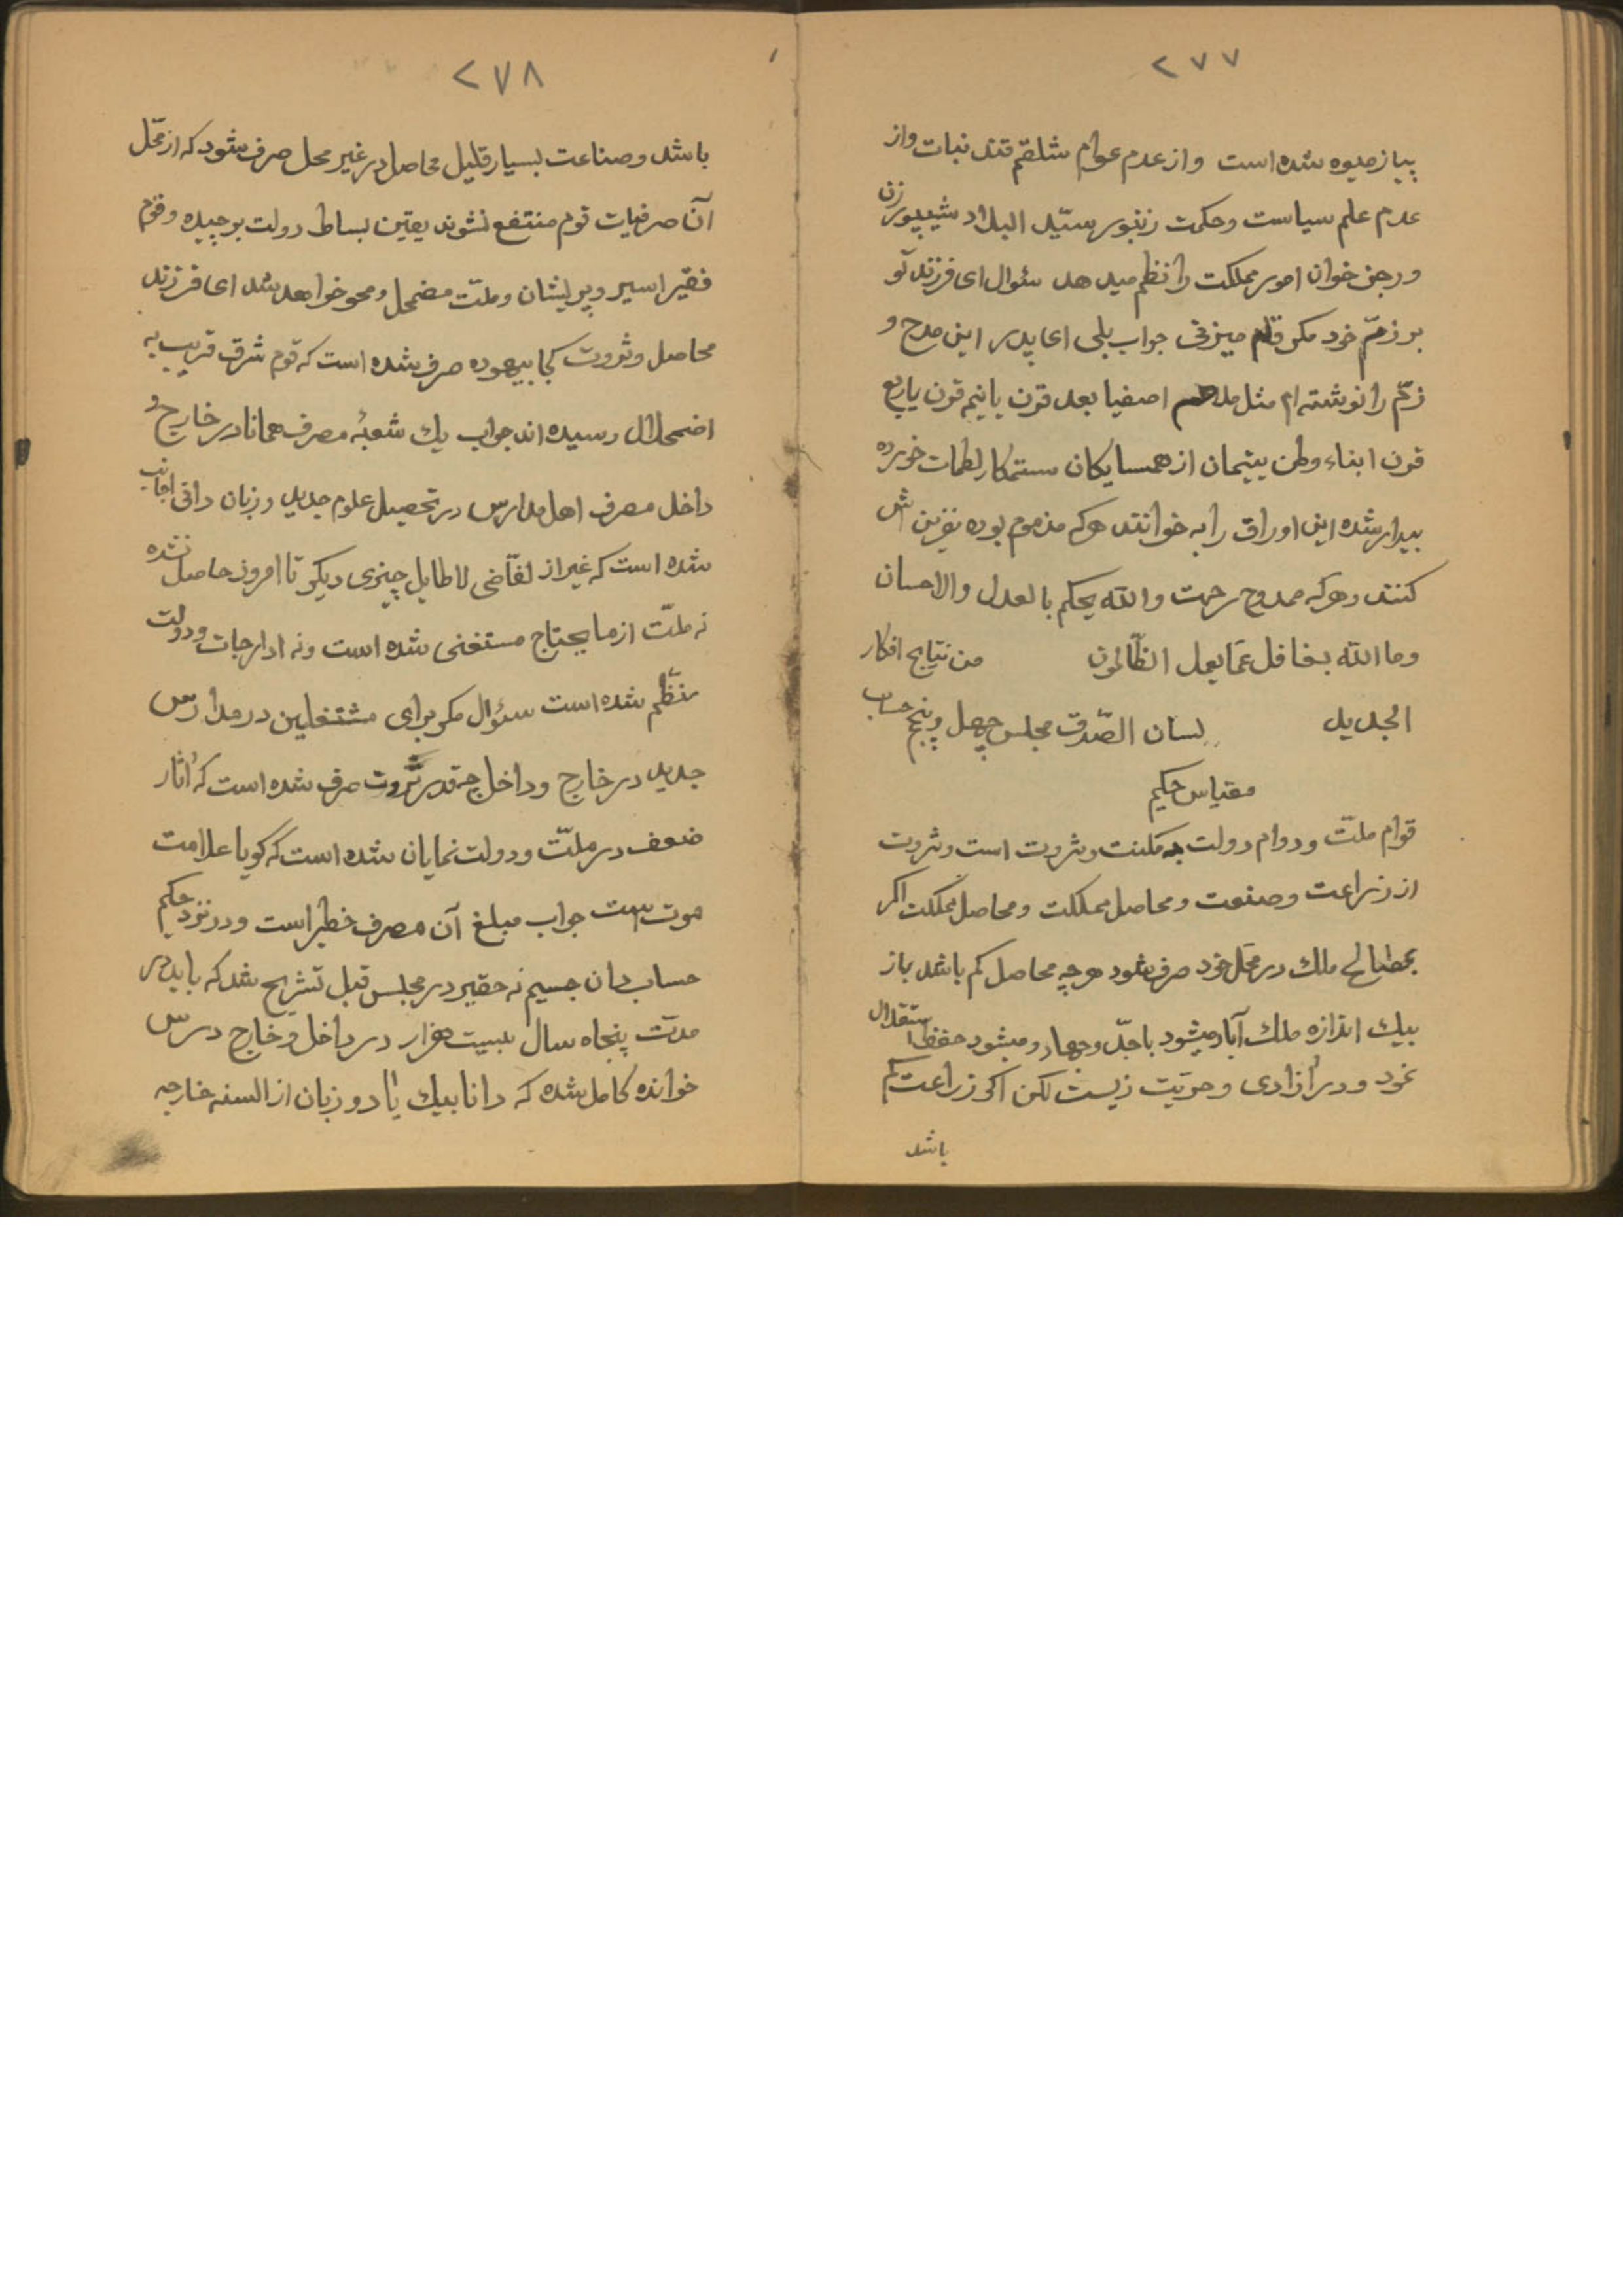 ۲۷۷
پیاز میوه شده است واز عدم عوام شلقم قند نبات واز
عدم علم سیاست وحکمت زنبور سیّد البلاد شیپور زن
ورجز خوان امور مملکت را نظم میدهد سئوال ای فرزند تو
بر زمّ خود مکر قلم میزنی جواب بلی ای پدر این مدح و
زمّ را نوشته ام مثل اصفیا بعد قرن یا نیم قرن یا ربع
قرن ابناء وطن یتیمان از همسایکان ستمکار لطمات خورده
بیدار شده این اوراق را به خوانند هرکه مذموم بوده نفرین اش
کنند وهرکه ممدوح رحمت والله یحکم بالعدل والاحسان
وما الله بغافل عمّا یعمل الظّالمون من نتایج افکار
الجدید لسان الصّدق مجلس چهل وپنج حساب
مقیاس حکیم
قوام ملّت ودوام دولت به مکنت وثروت است وثروت
از زراعت وصنعت ومحاصل مملکت ومحاصل مملکت اکر
ملك در محلّ خود صرف شود هرچه محاصل کم باشد باز
بیك اندازه ملك آباد میشود باجدّ وجهاد ومیشود حفظ استقلال
نمود ودر آزادی وحریّت زیست لکن اکر زراعت کم
باشد
۲۷۸
باشد وصناعت بسیار قلیل محاصل در غیر محل صرف شود که از محّل
آن صرفیات قوم منتفع نشوند یقین بساط دولت برچیده وقوم
فقیر اسیر وپریشان وملّت مضمحل ومحو خواهد شد ای فرزند
محاصل وثروت کجا بیهوده صرف شده است که قوم شرق قریب به
اضمحلال رسیده اند جواب یك شعبهٔ مصرف همانا در خارج و
داخل مصرف اهل مدارس در تحصیل علوم جدید وزبان دانی اجانب
شده است که غیر از لفّاضی لا طایل چیزی دیکر تا امروز حاصل نشده
نه ملّت از ما یحتاج مستغنی شده است ونه ادارجات ودولت
منظّم شده است سئوال مکر برای مشتغلین در مدارس
جدید در خارج وداخل چه قدر ثروت صرف شده است که آثار
ضعف در ملّت ودولت نمایان شده است که کویا علامت
موت است جواب مبلغ آن مصرف خطیر است ودر نزد حکیم
حساب دان جسیم نه حقیر در مجلس قبل تشریح شد که باید در
مدّت پنجاه سال بیست هزار در داخل وخارج درس
خوانده کامل شده که دانا بیك یا دو زبان از السنه خارجه